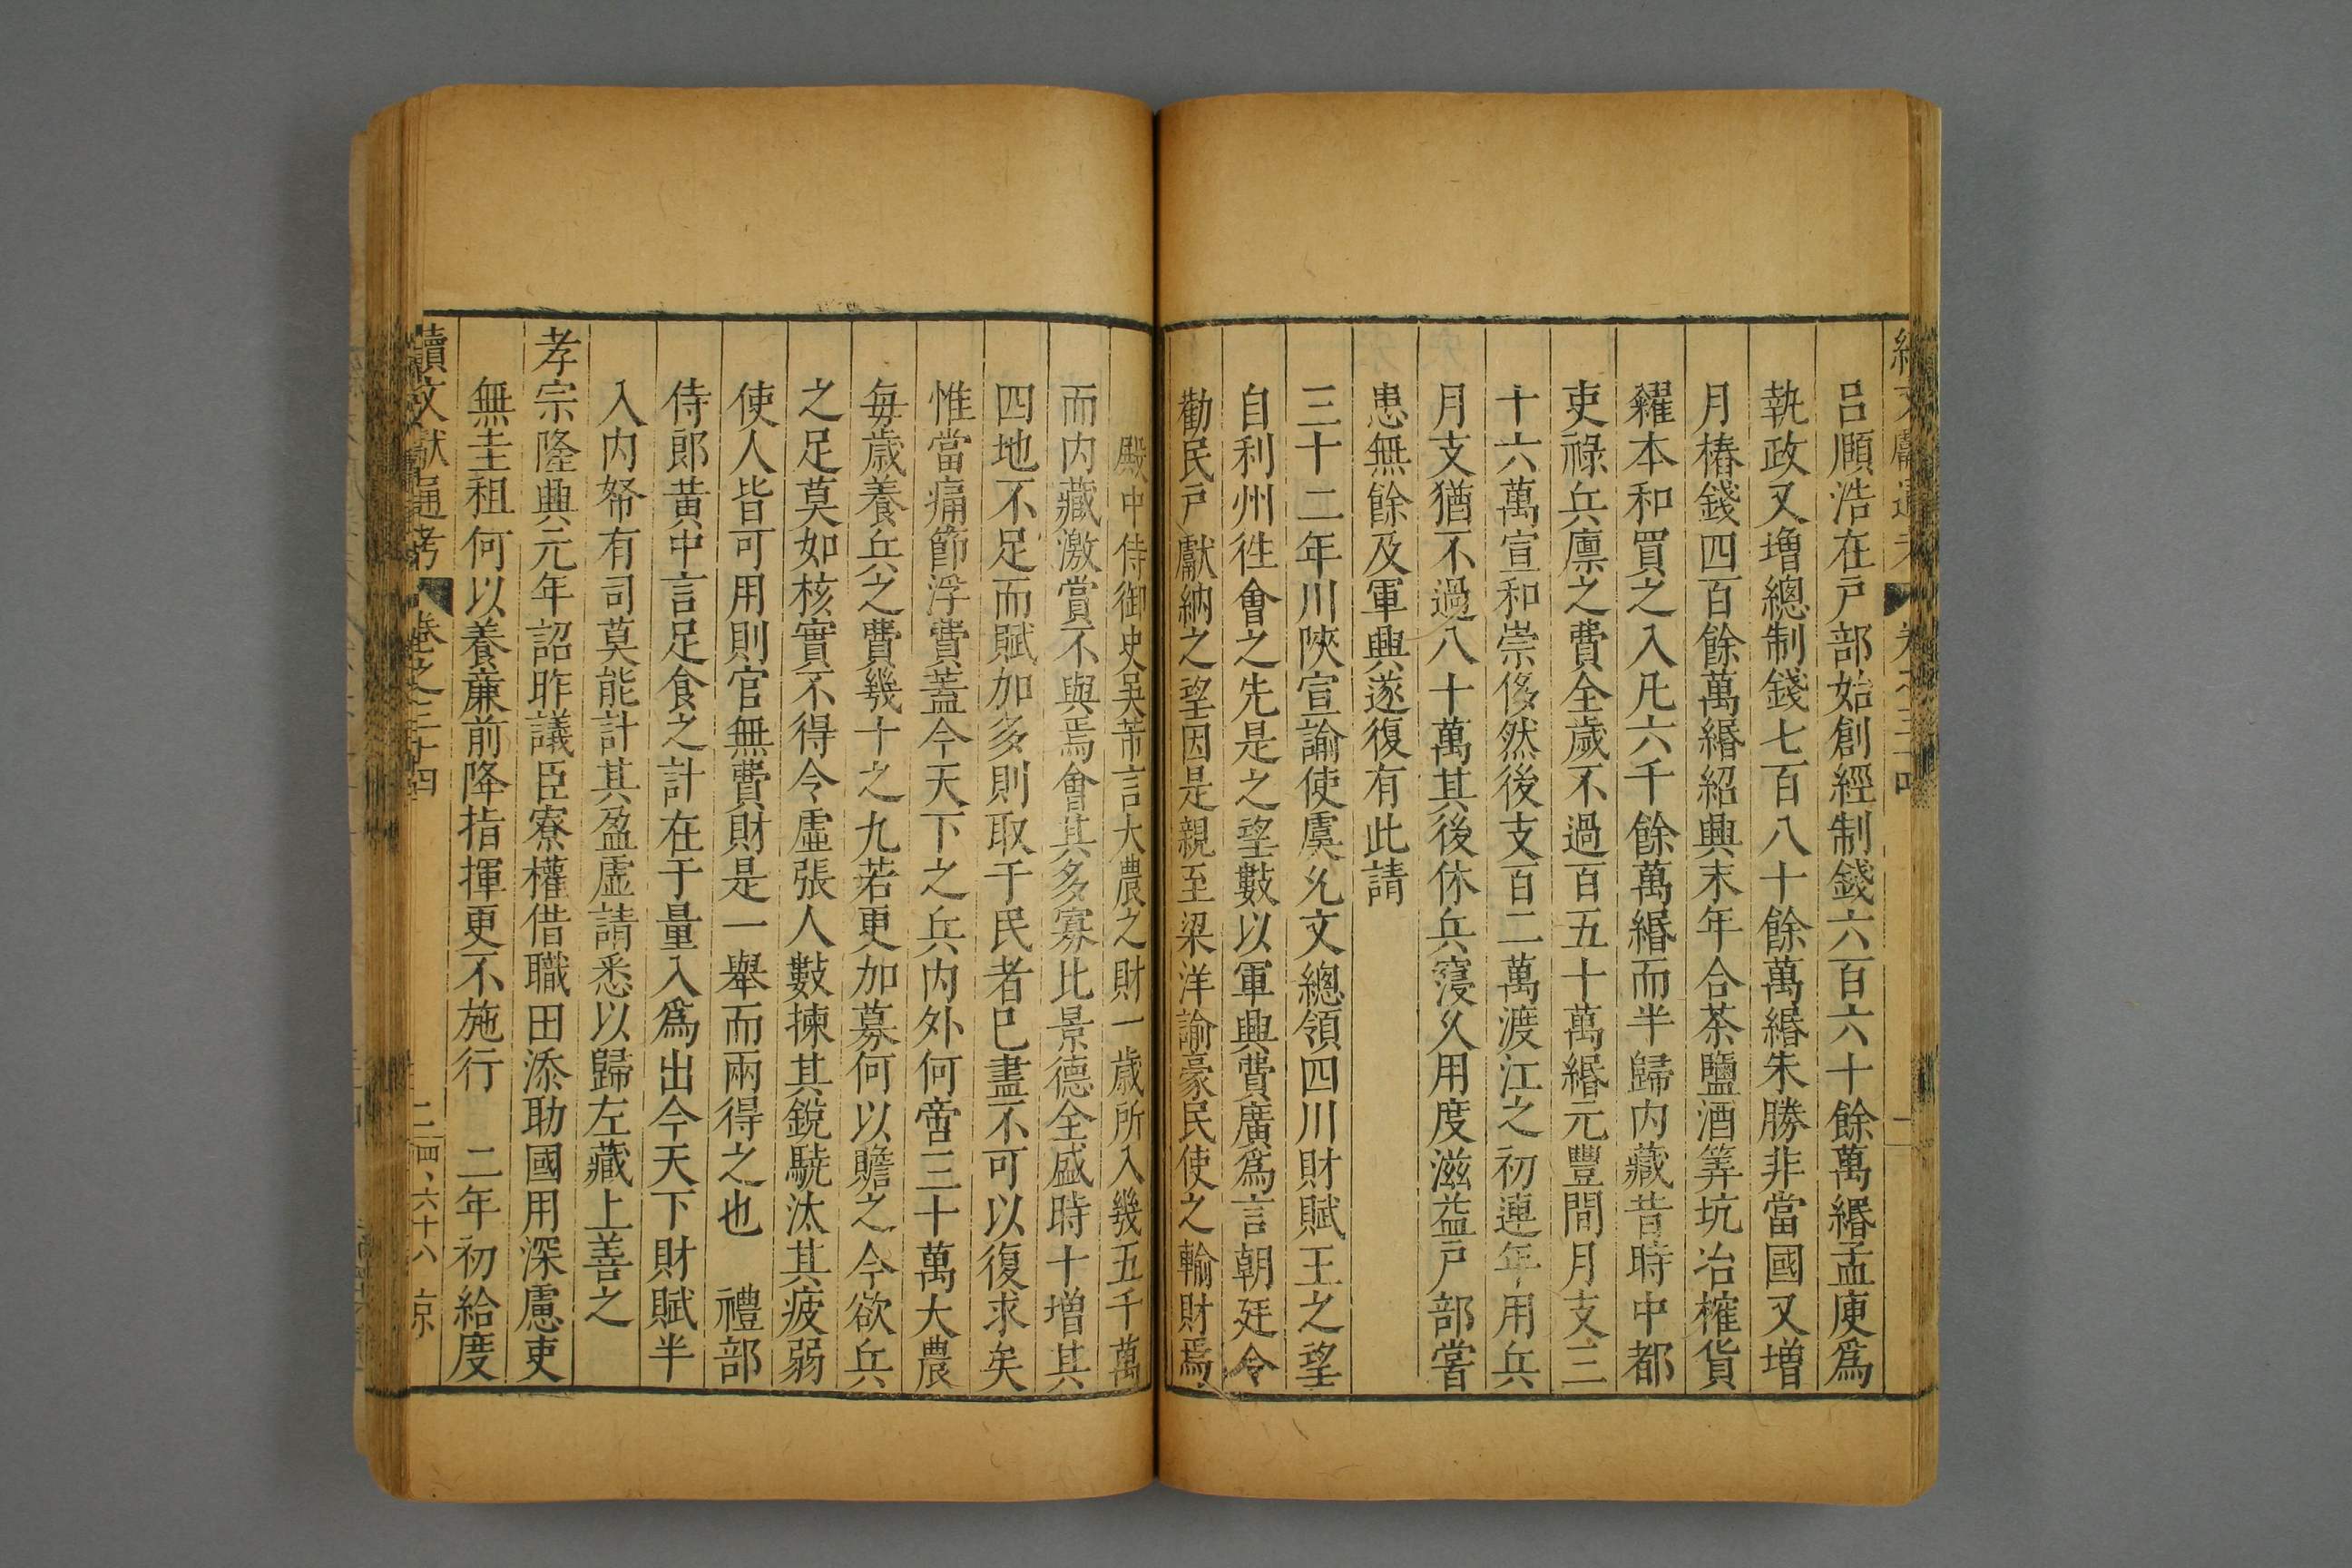 呂頤浩在戸部始創經制錢六百六十餘萬緡孟庾爲
執政又増總制錢七百八十餘萬緡朱勝非當國又増
月樁錢四百餘萬緡紹興末年合茶鹽酒筭坑冶榷貨
糴本和買之入凡六千餘萬緡而半歸内藏昔時中都
吏祿兵廪之費全歲不過百五十萬緡元豐間月支三
十六萬宣和崇侈然後支百二萬渡江之初連年用兵
月支猶不過八十萬其後休兵寖乆用度滋益戸部嘗
患無餘及軍興遂復有此請
三十二年川陜宣諭使虞允文總領四川財賦王之望
自利州徃會之先是之望數以軍興費廣爲言朝廷令
勸民戸獻納之望因是親至梁洋諭豪民使之輸財焉
殿中侍御史吴芾言大農之財一歲所入幾五千萬
而内藏激賞不與焉會其多寡比景德全盛時十增其
四地不足而賦加多則取于民者已盡不可以復求矣
惟當痛節浮費蓋今天下之兵内外何啻三十萬大農
毎歲養兵之費幾十之九若更加募何以贍之今欲兵
之足莫如核實不得令虛張人數揀其銳驍汰其疲弱
使人皆可用則官無費財是一舉而兩得之也　禮部
侍郎黃中言足食之計在于量入爲出今天下財賦半
入内帑有司莫能計其盈虛請悉以歸左藏上善之
孝宗隆興元年詔昨議臣寮權借職田添助國用深慮吏
無圭租何以養亷前降指揮更不施行　二年初給度
續文獻通考　卷之三十四　二　四六十八